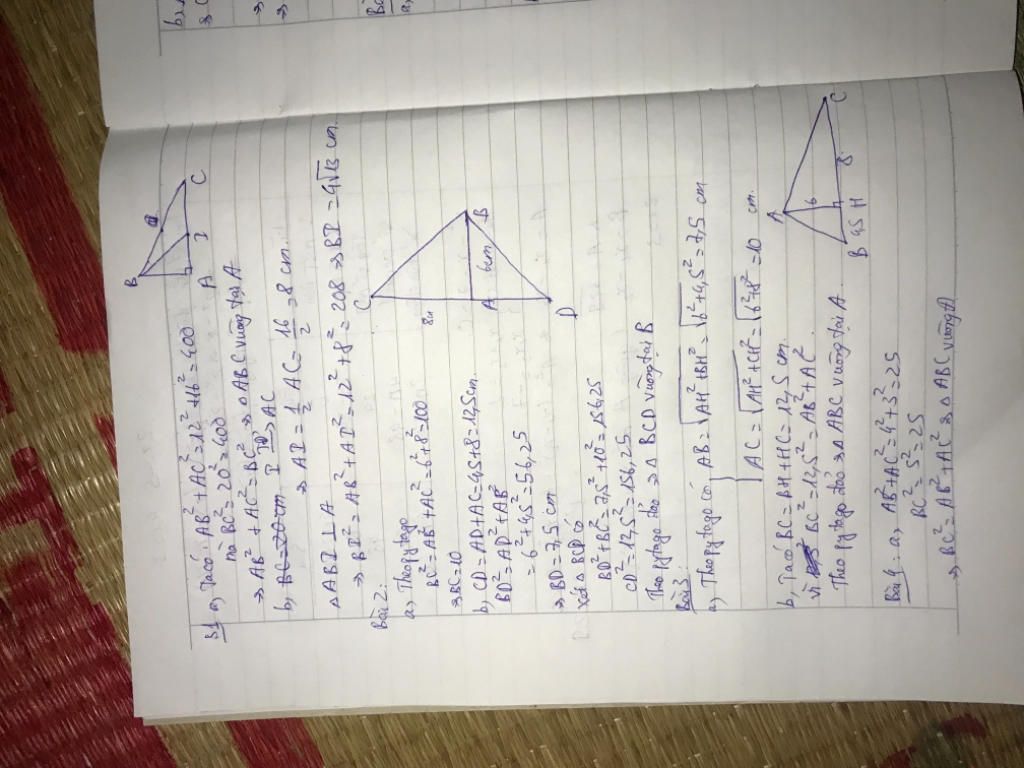 B1 a, Ta có: AB² + AC² = 12² + 16² = 400
mà BC² = 20² = 400
→ AB² + AC² = BC² → △ ABC vuông tại A
b, I TĐ AC
→ AI = 1/2 AC = 16/2 = 8 cm.
△ ABI ⊥ A
→ BI² = AB² + AI² = 12² + 8² = 208 → BI = 4√13 cm.
Bài 2:
a, Theo pytago
BC² = AB² + AC² = 6² + 8² = 100
→ BC = 10
b, CD = AD + AC = 4,5 + 8 = 12,5 cm.
BD² = AD² + AB²
= 6² + 4,5² = 56,25
→ BD = 7,5 cm
Xét △ BCD có
BD² + BC² = 7,5² + 10² = 156,25
CD² = 12,5² = 156,25
Theo pytago đảo → △ BCD vuông tại B
Bài 3:
a, Theo pytago có AB = √AH² + BH² = √6² + 4,5² = 7,5 cm
AC = √AH² + CH² = √6² + 8² = 10 cm.
b, Ta có BC = BH + HC = 12,5 cm.
vì BC² = 12,5² = AB² + AC²
Theo pytago đảo → △ ABC vuông tại A.
Bài 4: a, AB² + AC² = 4² + 3² = 25
BC² = 5² = 25
→ BC² = AB² + AC² → △ ABC vuông tại A
B
A
I
C
C
8cm
A
6cm
B
D
A
6
B
4,5
H
8
C
b,
Bài
a,